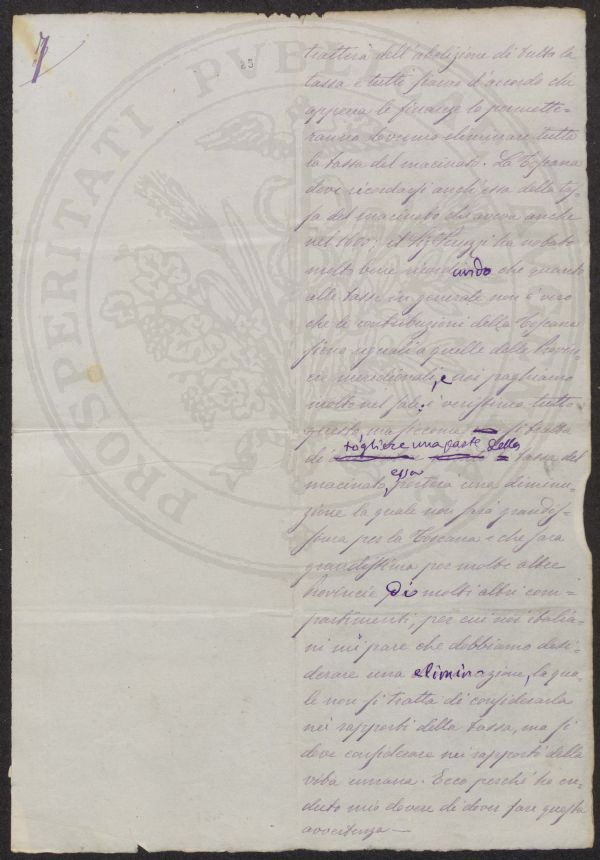 7
PROSPERITATI PUBL
tratterà dell'abolizione di tutta la
tassa e tutti siamo d'accordo che
appena le finanze lo permette-
ranno dovremo eliminare tutta
la tassa del macinato. La Toscana
deve ricordarsi anch'essa della tas-
sa del macinato che aveva anche
nel 1600; ed il Sig. Peruzzi ha notato
molto bene ricordando che quanto
alle tasse in generale non è vero
che le contribuzioni della Toscana
sieno uguali a quelle delle Provin-
cie meridionali, e noi paghiamo
molto nel sale: è verissimo tutto
questo, ma siccome si tratta
di togliere una parte della tassa del
macinato, essa porterà una diminu-
zione la quale non sarà grandis-
sima per la Toscana e che sarà
grandissima per molte altre
Provincie di molti altri com-
partimenti, per cui noi italia-
ni mi pare che dobbiamo desi-
derare una eliminazione, la qua-
le non si tratta di considerarla
nei rapporti della tassa, ma si
deve considerare nei rapporti della
vita umana. Ecco perché ho cre-
duto mio dovere di dover fare questa
avvertenza —